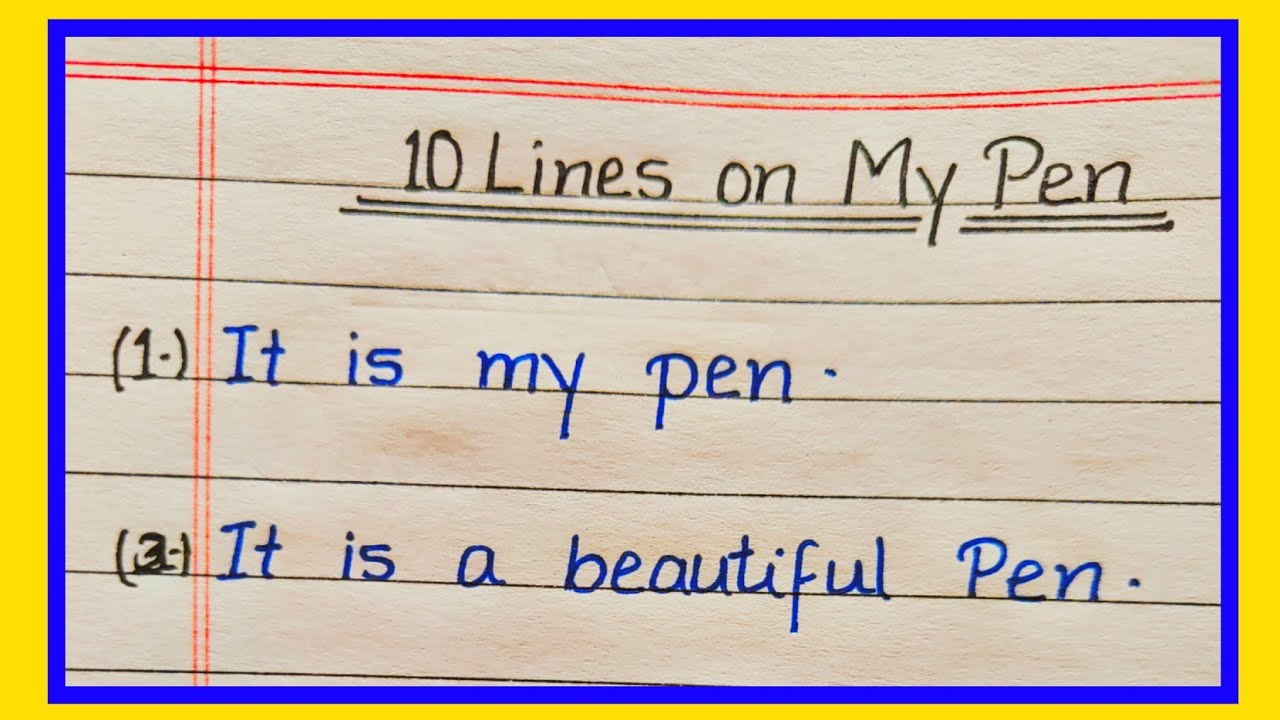 10 Lines on My Pen
(1.) It is my pen.
It is a beautiful Pen.